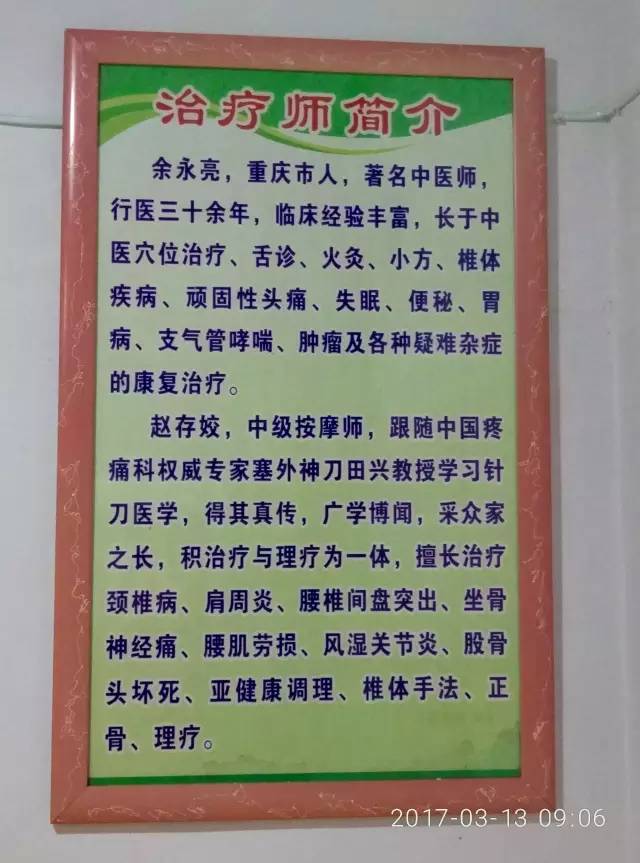 治疗师简介
余永亮，重庆市人，著名中医师，
行医三十余年，临床经验丰富，长于中
医穴位治疗、舌诊、火灸、小方、椎体
疾病、顽固性头痛、失眠、便秘、胃
病、支气管哮喘、肿瘤及各种疑难杂症
的康复治疗。
赵存姣，中级按摩师，跟随中国疼
痛科权威专家塞外神刀田兴教授学习针
刀医学，得其真传，广学博闻，采众家
之长，积治疗与理疗为一体，擅长治疗
颈椎病、肩周炎、腰椎间盘突出、坐骨
神经痛、腰肌劳损、风湿关节炎、股骨
头坏死、亚健康调理、椎体手法、正
骨、理疗。
2017-03-13 09:06